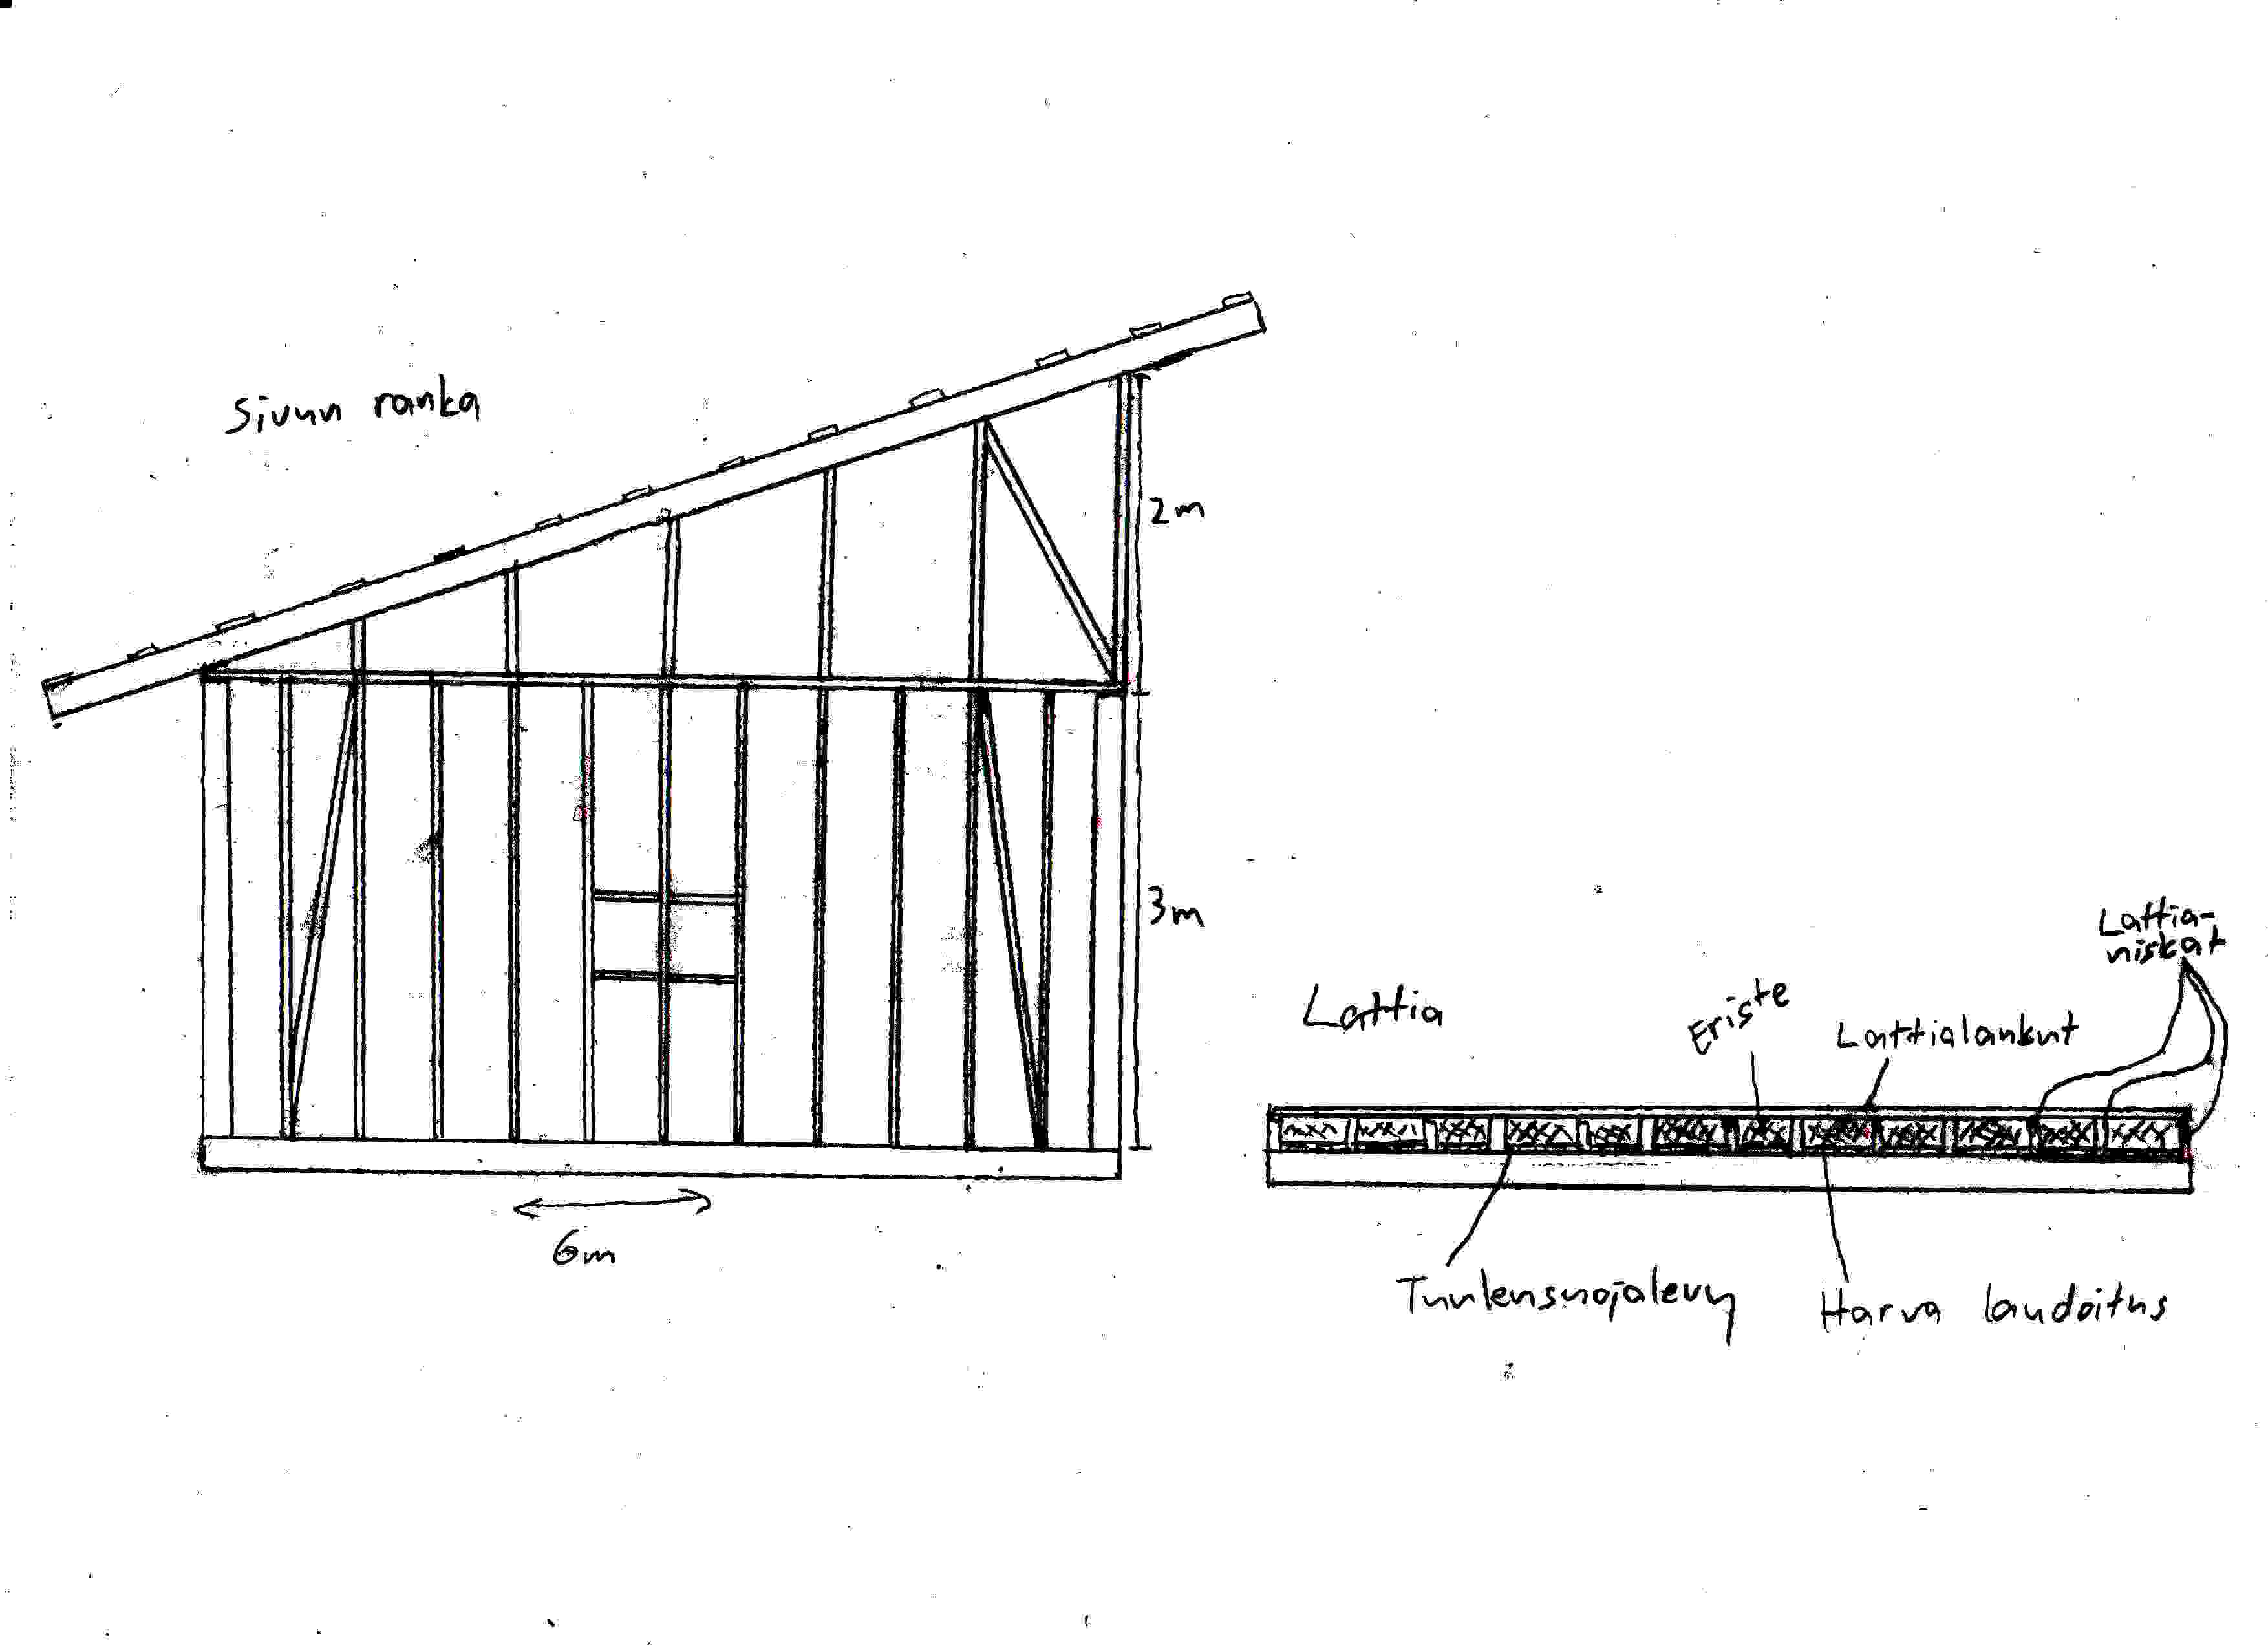 Sivun ranka
2m
3m
6m
Lattia
Eriste
Lattialankut
Lattia-
niskat
Tuulensuojalevy
Harva laudoitus